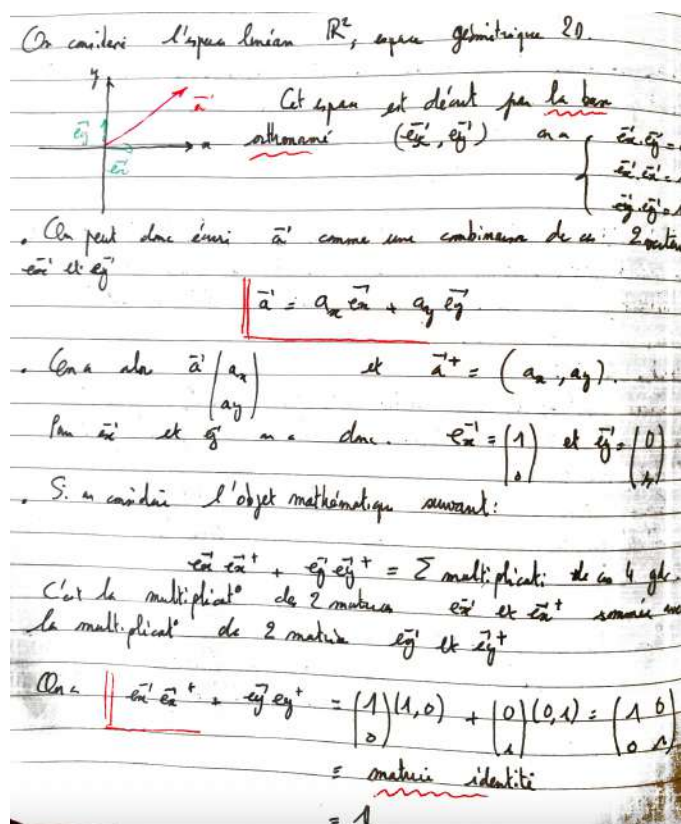 On considère l'espace linéaire ℝ², espace géométrique 2D.
y
a⃗
Cet espace est décrit par la base
e⃗y
x
orthonormé (e⃗x, e⃗y) on a { e⃗x.e⃗y =
e⃗x
e⃗x.e⃗x =
e⃗y.e⃗y = 1
. On peut donc écrire a⃗ comme une combinaison de ces 2 vecteurs
e⃗x et e⃗y
a⃗ = ax e⃗x + ay e⃗y
. On a alors a⃗ (ax
ay) et a⃗⁺ = (ax, ay).
Pour e⃗x et e⃗y on a donc. e⃗x = (1
0) et e⃗y = (0
1)
. Si on considère l'objet mathématique suivant:
e⃗x e⃗x⁺ + e⃗y e⃗y⁺ = Σ multiplicati de ces 4
C'est la multiplicat° des 2 matrices e⃗x et e⃗x⁺ sommée
la multiplicat° de 2 matrice e⃗y et e⃗y⁺
On a e⃗x e⃗x⁺ + e⃗y ey⁺ = (1
0)(1,0) + (0
1)(0,1) = (1 0
0 1)
= matrice identité
= 1